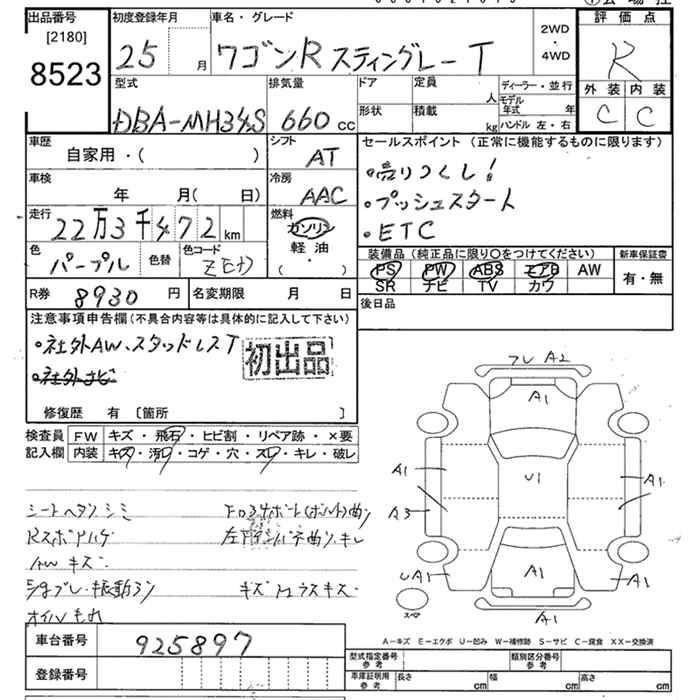 出品番号 初度登録年月 車名・グレード 評価点
[2180]
8523 25 月 ワゴンR スティングレー T 2WD・4WD R
外装 内装
C C
型式 排気量 ドア 定員 人 ディーラー・並行
DBA-MH34S 660 cc 形状 積載 kg モデル年式 年
ハンドル 左・右
車歴 シフト セールスポイント (正常に機能するものに限ります)
自家用・( ) AT ・売りつくし!
車検 冷房 ・プッシュスタート
年 月(日) AAC ・ETC
走行 22万3千472km 燃料
ガソリン
軽油
( ・ )
色 パープル 色替 色コード
装備品 (純正品に限り○をつけてください) 新車保証書
PS PW ABS エアB AW 有・無
SR ナビ TV カワ
R券 8930 円 名変期限 月 日 後日品
注意事項申告欄 (不具合内容等は具体的に記入して下さい)
・社外AW、スタッドレスT 初出品
・社外ナビ
修復歴 有 〔箇所 〕
検査員 FW キズ・飛石・ヒビ割・リペア跡・×要
記入欄 内装 キズ・汚レ・コゲ・穴・スレ・キレ・破レ
シートヘタシミ
AWキズ
オイルもれ
フレ A2
A1
A1 U1 A1
A3
UA1 A1 A1
スペア A1
A-キズ E-エクボ U-凹み W-補修跡 S-サビ C-腐食 XX-交換済
車台番号 925897
登録番号
型式指定番号 参考 類別区分番号 参考
車庫証明用 参考 長さ cm 幅 cm 高さ cm